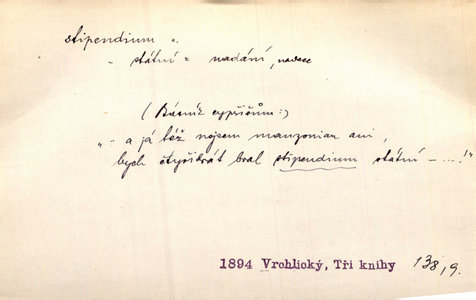 stipendium n.
- státní = nadání, nadace
(Básník cypřišům:)
"- a já též nejsem manzonian ani,
bych čtyřikrát bral stipendium státní - ...!"
1894 Vrchlický, Tři knihy 138,9.